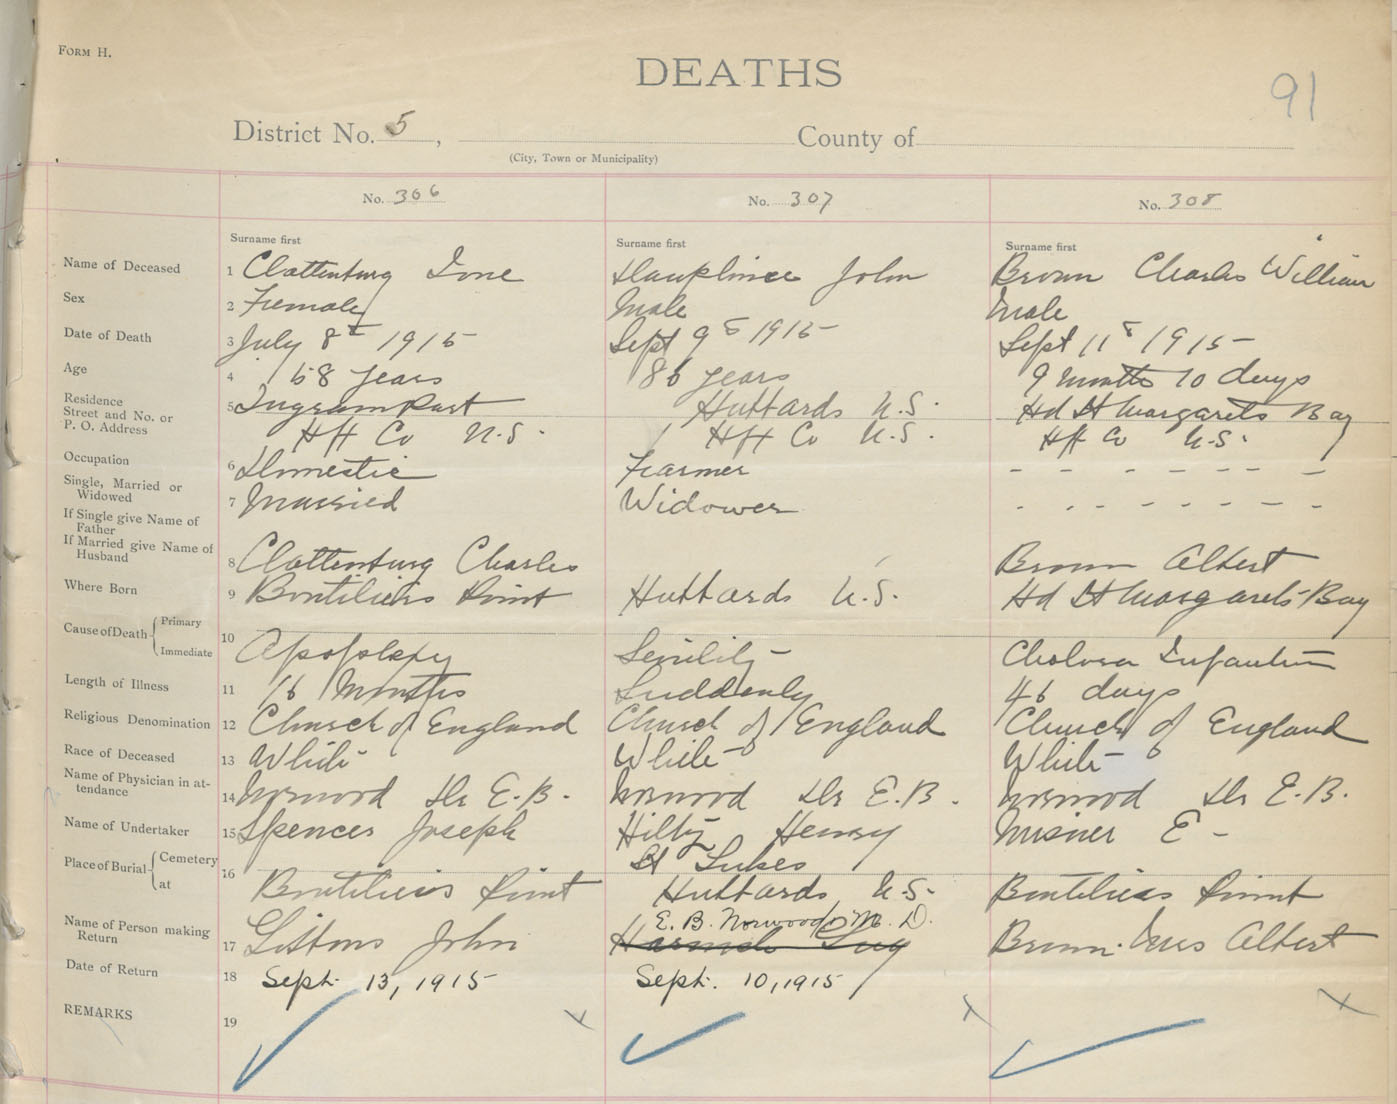 FORM H.
DEATHS
91
District No. 5, County of
(City, Town or Municipality)
No. 306 No. 307 No. 308
Surname first Surname first Surname first
Name of Deceased 1 Clattenburg Ione John Brown Charles William
Sex 2 Female Male Male
Date of Death 3 July 8th 1915 Sept 9th 1915 Sept 11th 1915
Age 4 58 years 86 years 9 Months 10 days
Residence
Street and No. or 5 Ingram Port Hubbards N.S. Hd St Margarets Bay
P. O. Address Hfx Co N.S. Hfx Co N.S. Hfx Co N.S.
Occupation 6 Domestic Farmer - - - - - - -
Single, Married or
Widowed 7 Married Widower - - - - - - -
If Single give Name of
Father
If Married give Name of
Husband 8 Clattenburg Charles Brown Albert
Where Born 9 Boutiliers Point Hubbards N.S. Hd St Margarets Bay
Cause of Death { Primary
Immediate 10 Apoplexy Senility Cholera Infantum
Length of Illness 11 Months Suddenly days
Religious Denomination 12 Church of England Church of England Church of England
Race of Deceased 13 White White White
Name of Physician in at-
tendance 14 Norwood Dr E.B. Norwood Dr E.B. Norwood Dr E.B.
Name of Undertaker 15 Spencer Joseph Hiltz Henry Misner E -
Place of Burial { Cemetery 16 St Lukes
at Boutiliers Point Hubbards N.S. Boutiliers Point
E. B. Norwood M. D.
Name of Person making
Return 17 John Harnish Guy Brown Mrs Albert
Date of Return 18 Sept. 13, 1915 Sept. 10, 1915
REMARKS 19